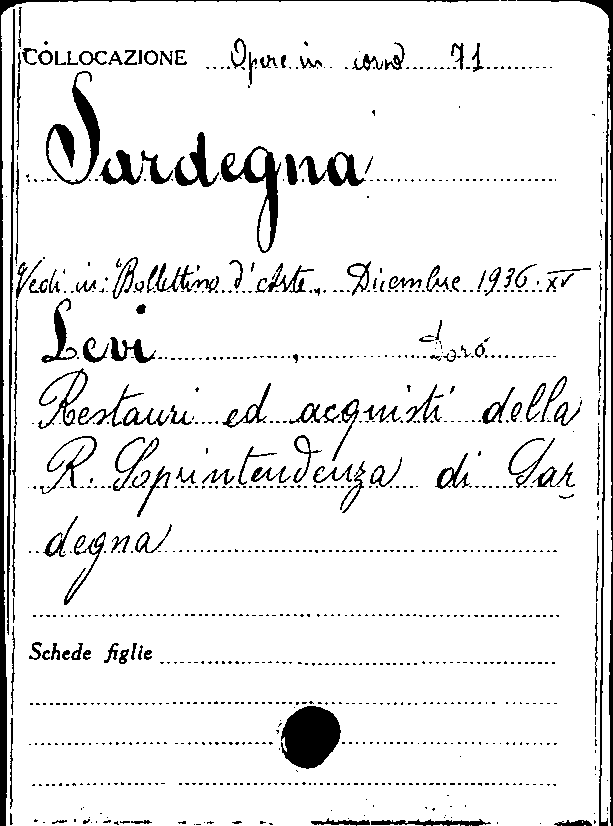 COLLOCAZIONE Opere in corso 71
Sardegna
Vedi in: "Bollettino d'Arte" Dicembre 1936. XV
Levi, Doro
Restauri ed acquisti della
R. Soprintendenza di Sar
degna
Schede figlie